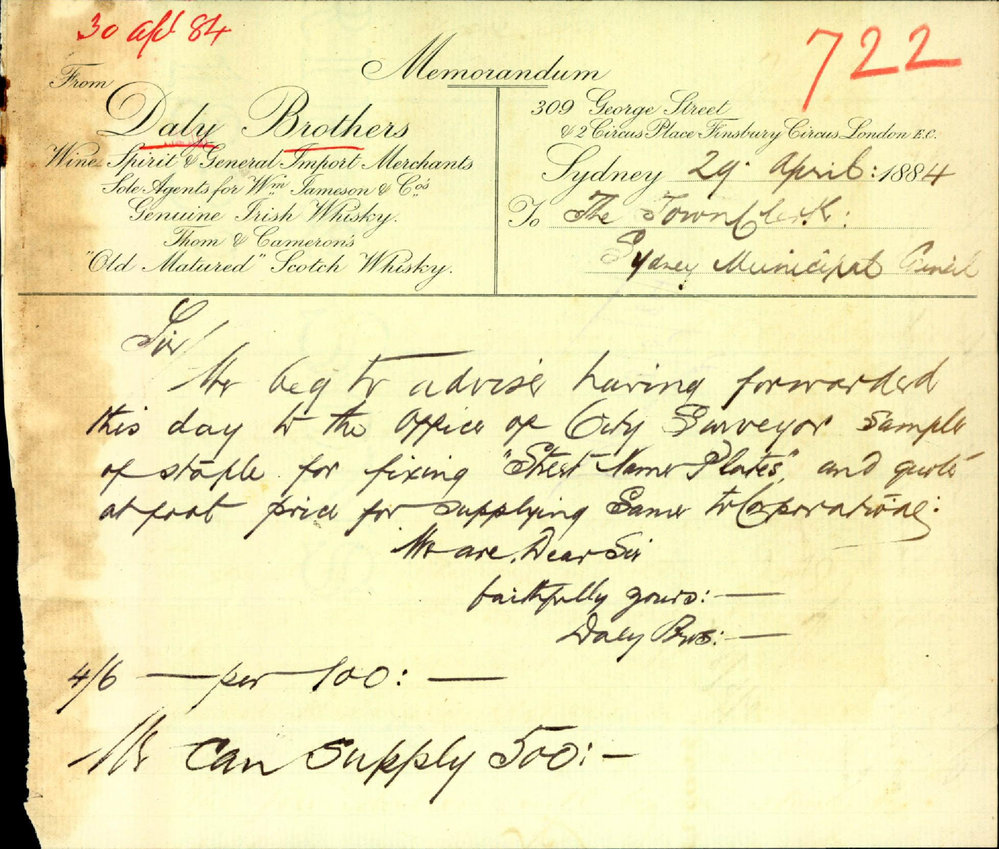 30 apl 84
722
Memorandum
From
Daly Brothers
Wine, Spirit & General Import Merchants
Sole Agents for Wm Jameson & Co's
Genuine Irish Whisky.
Thom & Cameron's
"Old Matured" Scotch Whisky.
309 George Street
& 2 Circus Place Finsbury Circus, London E.C.
Sydney 29 April: 1884
To The Town Clerk:
Sydney Municipal Council
Sir/
We beg to advise having forwarded
this day to the Office of City Surveyor sample
of staple for fixing "Street Name Plates", and quote
at foot price for supplying same to Corporation:
We are, Dear Sir
faithfully yours: —
Daly Bros: —
4/6 — per 100: —
We can supply 500: —